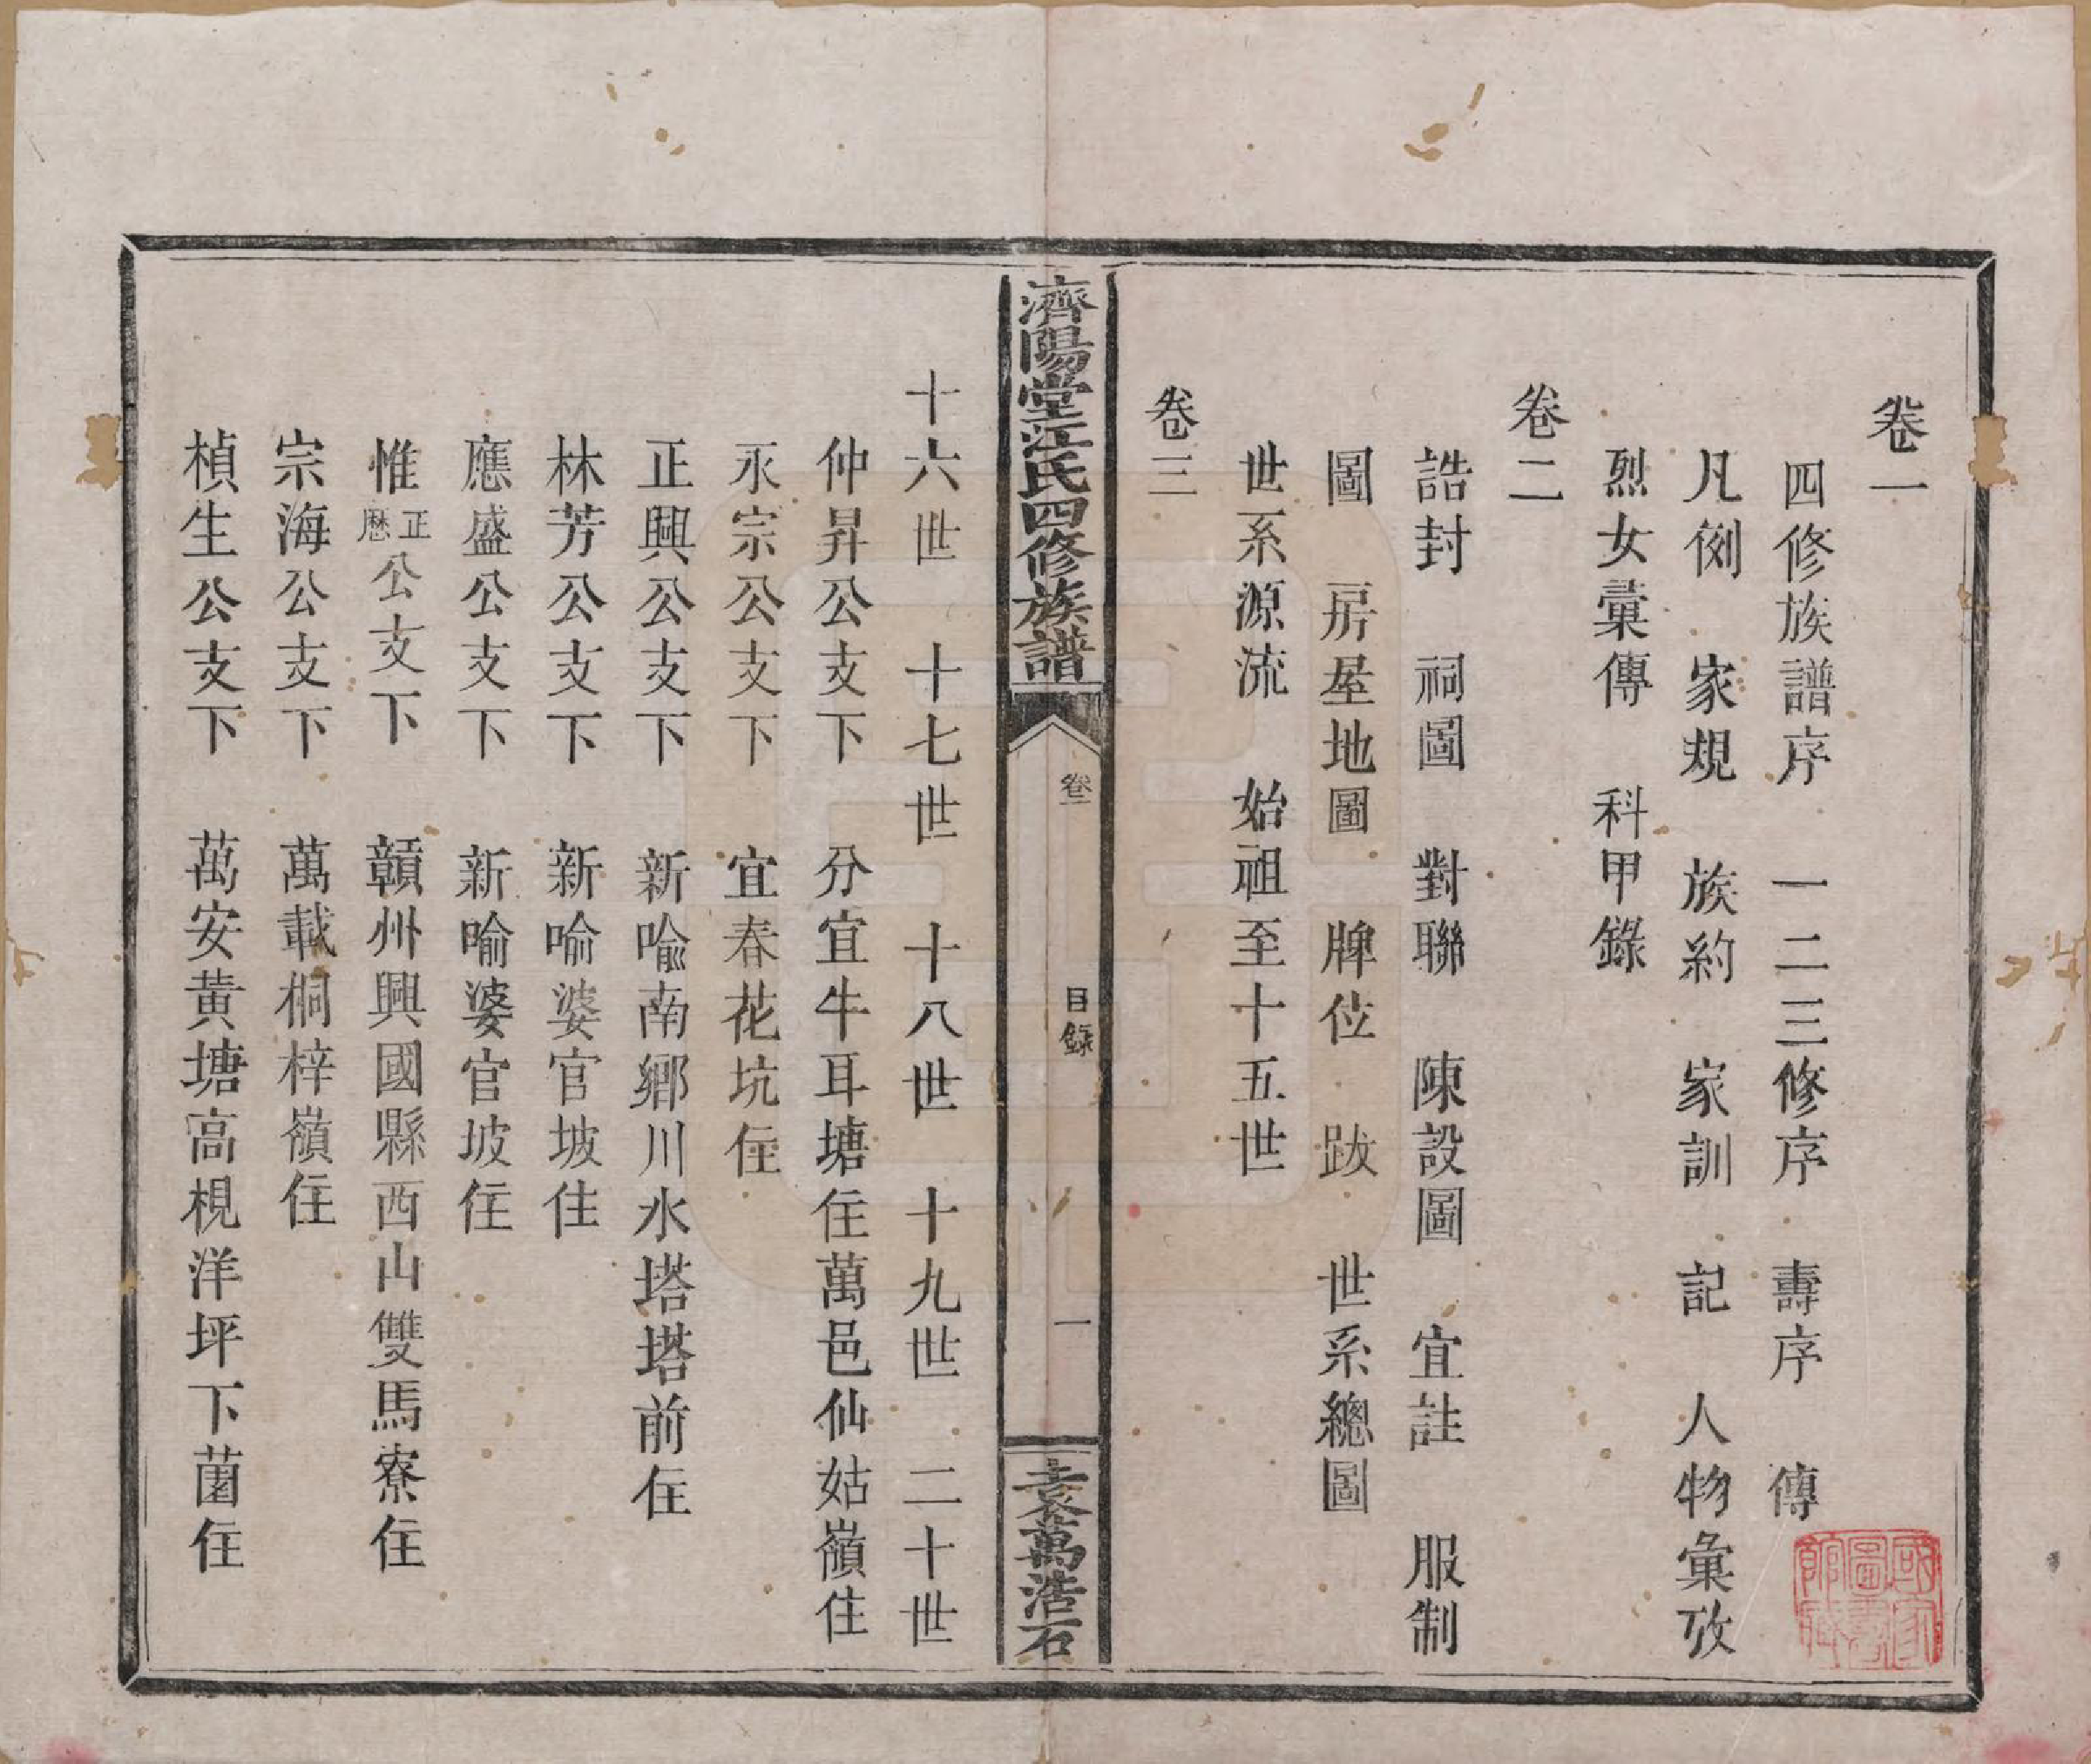 卷一
四修族譜序 一二三修序 壽序 傳
凡例 家規 族約 家訓 記 人物彙攷
烈女彙傳 科甲錄
卷二
誥封 祠圖 對聯 陳設圖 宜註 服制
圖 房屋地圖 牌位 跋 世系總圖
世系源流 始祖至十五世
卷三
濟陽堂江氏四修族譜 卷一 目錄 一 吉泰萬浩石
十六世 十七世 十八世 十九世 二十世
仲昇公支下 分宜牛耳塘住萬邑仙姑嶺住
永宗公支下 宜春花坑住
正興公支下 新喻南鄉川水塔塔前住
林芳公支下 新喻婆官坡住
應盛公支下 新喻婆官坡住
惟正懋公支下 贛州興國縣西山雙馬寮住
宗海公支下 萬載桐梓嶺住
楨生公支下 萬安黃塘高梘洋坪下菌住
國家圖書館藏